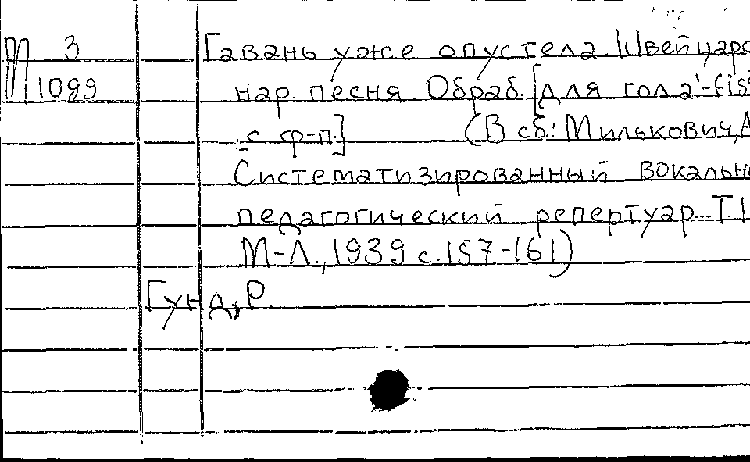 П 3 Гавань уже опустела. Швейцарс
1099 нар песня Обраб. [для гол a'-fis
с ф-п.] (В сб.: Милькович, А
Систематизированный вокальн
педагогический репертуар Т I
М-Л., 1939 с. 157-161)
Гунд, Р.